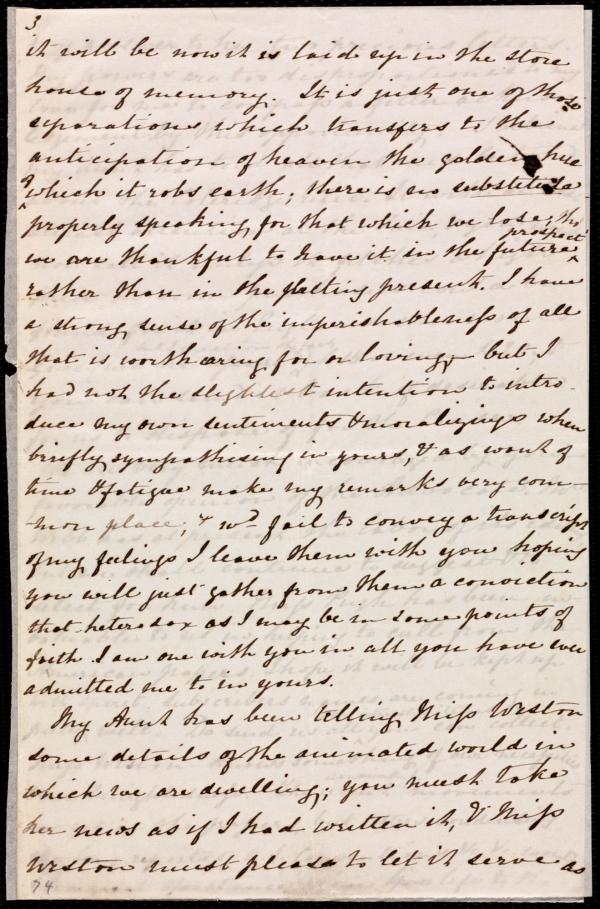 3
it will be now it is laid up in the store
house of memory. It is just one of those
separations which transfers to the
anticipation of heaven the golden hue
which it robs earth; there is no substitute
properly speaking, for that which we lose, tho'
prospect
we are thankful to have it in the future ^
rather than in the flitting present. I have
a strong sense of the imperishableness of all
that is worth caring for or loving, but I
had not the slightest intention to intro-
duce my own sentiments & moralizings when
briefly sympathising in yours, & as want of
time & fatigue make my remarks very com-
-mon place, & wd. fail to convey a transcript
of my feelings I leave them with you hoping
you will just gather from them a conviction
that heterodox as I may be in some points of
faith I am one with you in all you have ever
admitted me to in yours.
My Aunt has been telling Miss Weston
some details of the animated world in
which we are dwelling; you must take
her news as if I had written it, & Miss
Weston must please to let it serve as
74